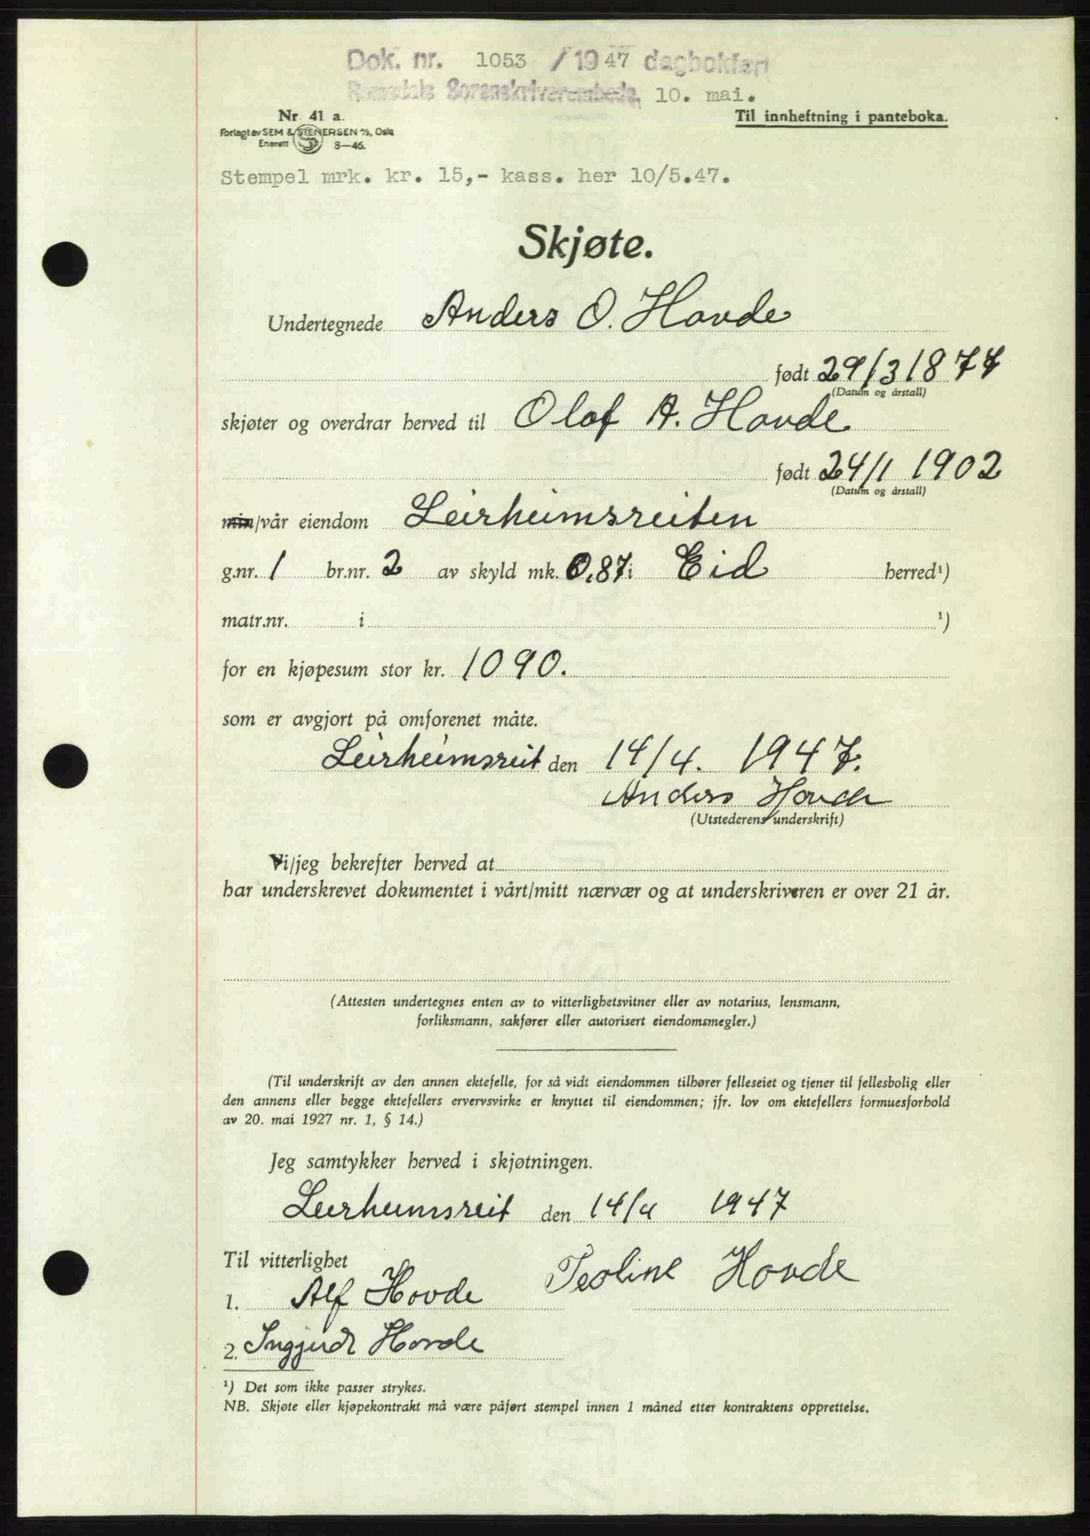 Dok. nr. 1053 /1947 dagbokført
Romsdals Sorenskriverembede, 10. mai.
Nr 41 a.
Til innheftning i panteboka.
Forlagt av SEM & STENERSEN A/S, Oslo
Enerett 8-46.
Stempel mrk. kr. 15,- kass. her 10/5.47.
Skjøte.
Undertegnede Anders O. Hovde
født 29/3 1877
(Datum og årstall)
skjøter og overdrar herved til Olaf A. Hovde
født 24/1 1902
(Datum og årstall)
min/vår eiendom Leirheimsreiten
g.nr. 1 br.nr. 2 av skyld mk. 0.87 i Eid herred¹)
matr.nr. i ¹)
for en kjøpesum stor kr. 1090.
som er avgjort på omforenet måte.
Leirheimsreit den 14/4. 1947.
Anders Hovde
(Utstederens underskrift)
Vi/jeg bekrefter herved at
har underskrevet dokumentet i vårt/mitt nærvær og at underskriveren er over 21 år.
(Attesten undertegnes enten av to vitterlighetsvitner eller av notarius, lensmann,
forliksmann, sakfører eller autorisert eiendomsmegler.)
(Til underskrift av den annen ektefelle, for så vidt eiendommen tilhører felleseiet og tjener til fellesbolig eller
den annens eller begge ektefellers ervervsvirke er knyttet til eiendommen; jfr. lov om ektefellers formuesforhold
av 20. mai 1927 nr. 1, § 14.)
Jeg samtykker herved i skjøtningen.
Leirheimsreit den 14/4 1947
Til vitterlighet
Teoline Hovde
1. Alf Hovde
2. Ingjerdt Hovde
¹) Det som ikke passer strykes.
NB. Skjøte eller kjøpekontrakt må være påført stempel innen 1 måned etter kontraktens opprettelse.